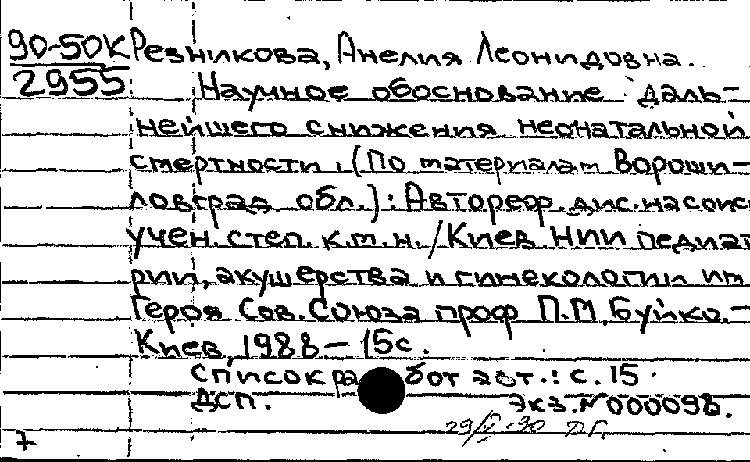 90-50К Резникова, Анелия Леонидовна.
2955 Научное обоснование даль-
нейшего снижения неонатальной
смертности. (По материалам Вороши-
ловград обл.): Автореф. дис. на соиск
учен. степ. к.м.н. / Киев НИИ педиат
рии, акушерства и гинекологии им
Героя Сов. Союза проф П.М. Буйко.-
Киев, 1988 - 15с.
Список работ авт.: с. 15.
ДСП. Экз. № 000098.
29/V-90
7